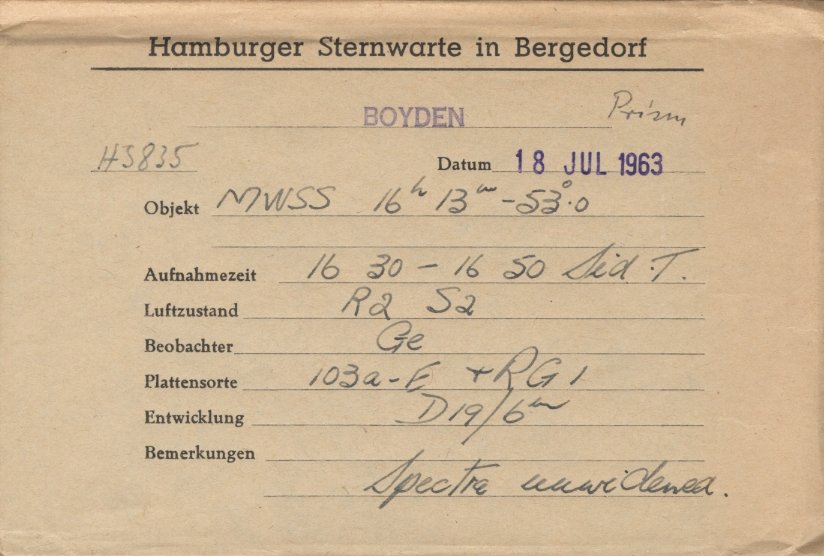 Hamburger Sternwarte in Bergedorf
BOYDEN Prism
H3835 Datum 18 JUL 1963
Objekt MWSS 16h 13m -53°.0
Aufnahmezeit 16 30 - 16 50 Sid. T.
Luftzustand R2 S2
Beobachter Ge
Plattensorte 103a-E + RG1
Entwicklung D19/6m
Bemerkungen
Spectra unwidened.